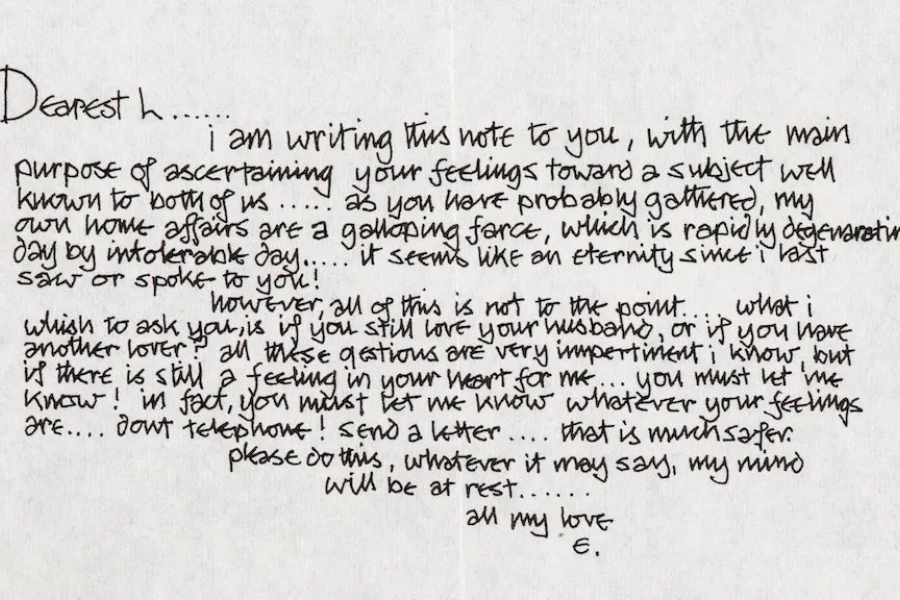 Dearest L......
i am writing this note to you, with the main
purpose of ascertaining your feelings toward a subject well
known to both of us ..... as you have probably gathered, my
own home affairs are a galloping farce, which is rapidly degenaratin
day by intolerable day...... it seems like an eternity since i last
saw or spoke to you!
however, all of this is not to the point.... what i
whish to ask you, is if you still love your husband, or if you have
another lover? all these qestions are very impertinent i know, but
if there is still a feeling in your heart for me... you must let me
know! in fact, you must let me know whatever your feelings
are.... dont telephone! send a letter .... that is much safer.
please do this, whatever it may say, my mind
will be at rest......
all my love
E.